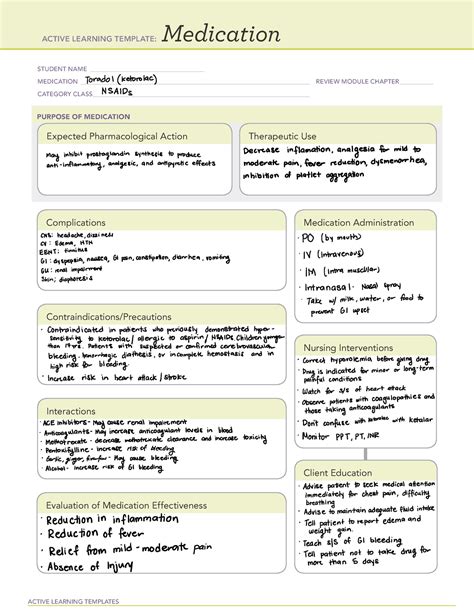 ACTIVE LEARNING TEMPLATE: Medication
STUDENT NAME
MEDICATION Toradol (ketorolac)
REVIEW MODULE CHAPTER
CATEGORY CLASS NSAIDs
PURPOSE OF MEDICATION
Expected Pharmacological Action
May inhibit prostaglandin synthesis to produce
anti-inflammatory, analgesic, and antipyretic effects
Therapeutic Use
Decrease inflamation, analgesia for mild to
moderate pain, fever reduction, dysmenorrhea,
inhibition of platlet aggregation
Complications
CNS: headache, dizziness
CV: Edema, HTN
EENT: tinnitus
GI: dyspepsia, nausea, GI pain, constipation, diarrhea, vomiting
GU: renal impairment
Skin: diaphoresis
Medication Administration
· PO (by mouth)
· IV (Intravenous)
· IM (Intra muscular)
· Intranasal: Nasal spray
· Take w/ milk, water, or food to
prevent GI upset
Contraindications/Precautions
· Contraindicated in patients who previously demonstrated hyper-
sensitivity to ketorolac/ allergic to aspirin / NSAIDS, Children younger
than 17yrs. Patients with suspected or confirmed cerebrovascular
bleeding, hemorrhagic diathesis, or incomplete hemostasis and in
high risk for bleeding.
· Increase risk in heart attack / stroke
Nursing Interventions
· Correct hypovolemia before giving drug
· Drug is indicated for minor or long-term
painful conditions
· Watch for s/s of heart attack
· Observe patients with coagulopathies and
those taking anticoagulants
· Don't confuse with ketorolac with ketalar
· Monitor PPT, PT, INR
Interactions
· ACE inhibitors - May cause renal impairment
· Anticoagulants - May increase anticoagulant levels in blood
· Methotrexate - decrease methotrexate clearance and increase toxicity
· Pentoxifylline - increase risk of bleeding
· Garlic, ginger, - May cause bleeding
· Alcohol - increase risk of GI bleeding
Client Education
· Advise patient to seek medical attention
immediately for chest pain, difficulty
breathing
· Advise to maintain adequate fluid intake
· Tell patient to report edema and
weight gain.
· Teach s/s of GI bleeding
· Tell patient not to take drug for
more than 5 days
Evaluation of Medication Effectiveness
· Reduction in inflammation
· Reduction of fever
· Relief from mild-moderate pain
· Absence of Injury
ACTIVE LEARNING TEMPLATES